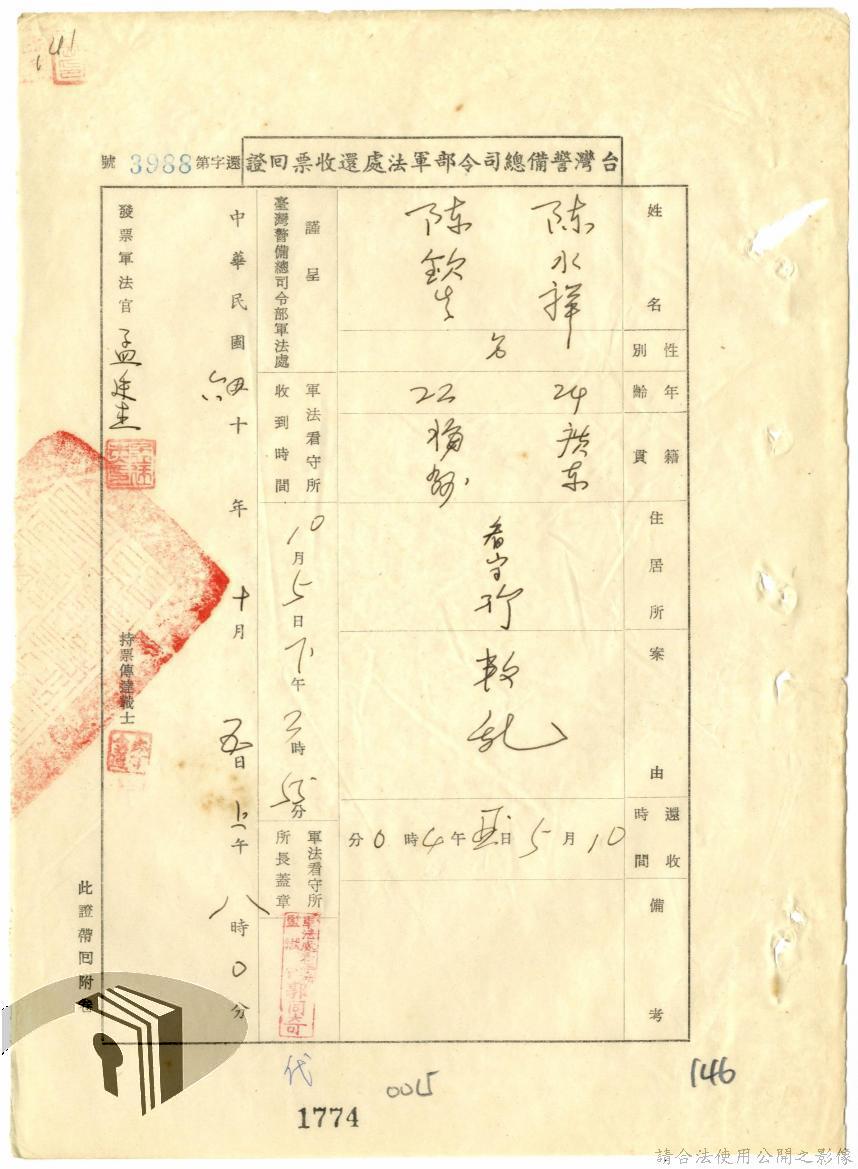 141
台灣警備總司令部軍法處還收票回證
還字第3988號
姓名
陳永祥
陳欽生
性別
年齡
24
22
籍貫
廣东
住居所
看守所
案由
叛乱
還收時間
10月5日午4時0分
備考
謹呈
臺灣警備總司令部軍法處
軍法看守所收到時間
10月5日下午3時55分
軍法看守所所長蓋章
中華民國六十年十月五日上午八時0分
發票軍法官
孟廷杰
持票傳達戰士
此證帶回附卷
代
0015
146
1774
請合法使用公開之影像